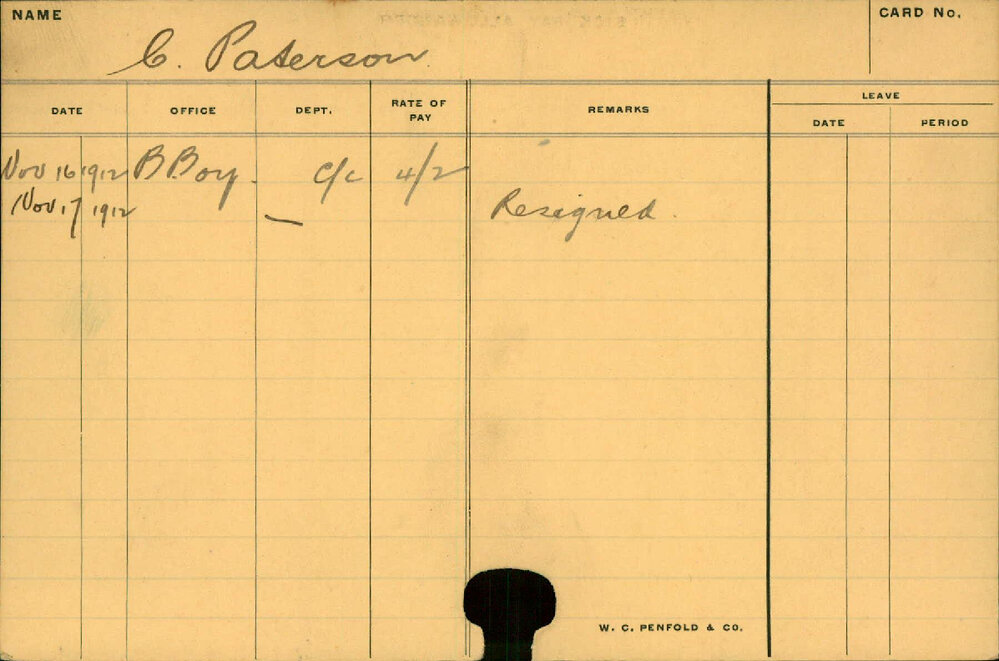 NAME
C. Paterson
CARD No.
DATE OFFICE DEPT. RATE OF PAY REMARKS LEAVE
DATE PERIOD
Nov 16 1912 B.Boy. C/c 4/2
Nov. 17 1912 — Resigned.
W. C. PENFOLD & CO.